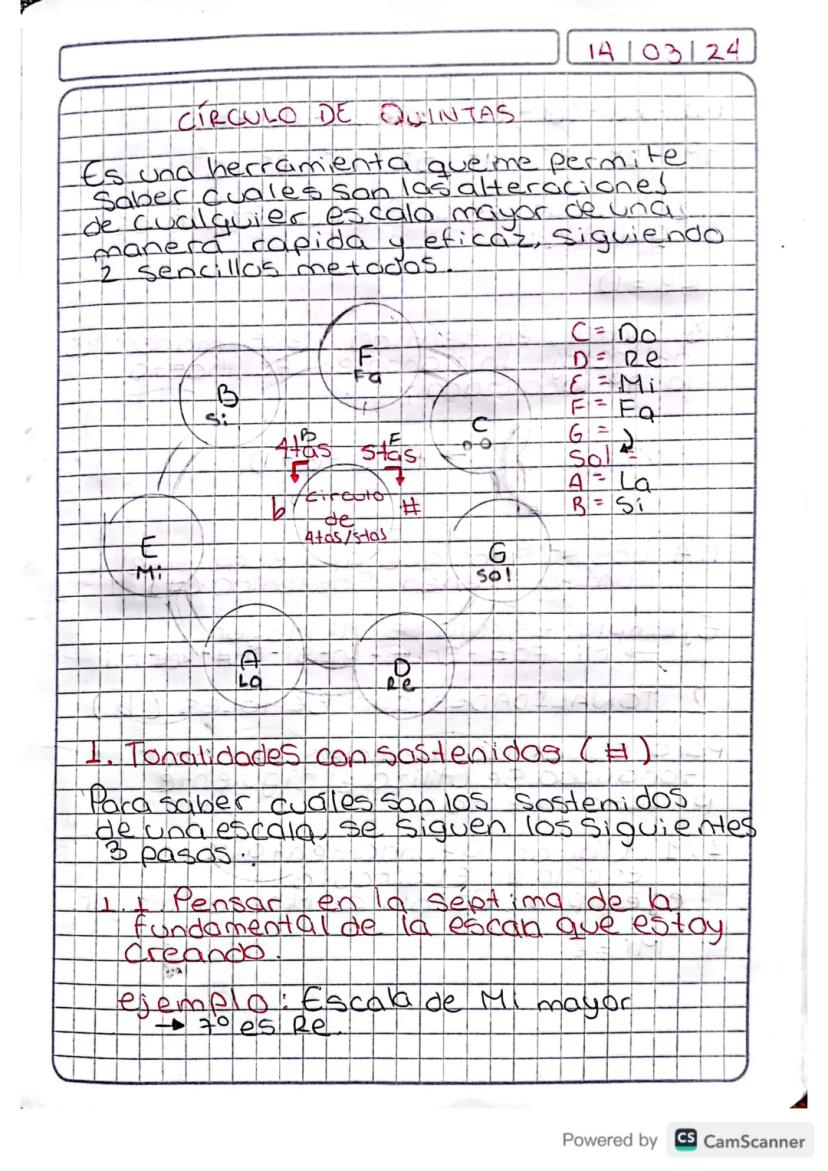 14/03/24
CÍRCULO DE QUINTAS
Es una herramienta que me permite
saber cuales son las alteraciones
de cualquier escala mayor de una
manera rapida y eficaz, siguiendo
2 sencillos metodos.
F
Fa
B
Si
C
DO
E
Mi
G
Sol
A
La
D
Re
B
4tas
E
5tas
b
#
circulo
de
4tas/5tas
C = Do
D = Re
E = Mi
F = Fa
G =
Sol =
A = La
B = Si
1. Tonalidades con sostenidos (#)
Para saber cuáles son los sostenidos
de una escala, se siguen los siguientes
3 pasos:
1.1. Pensar en la séptima de la
fundamental de la escala que estoy
creando.
ejemplo: Escala de Mi mayor
→ 7º es Re.
Powered by CS CamScanner